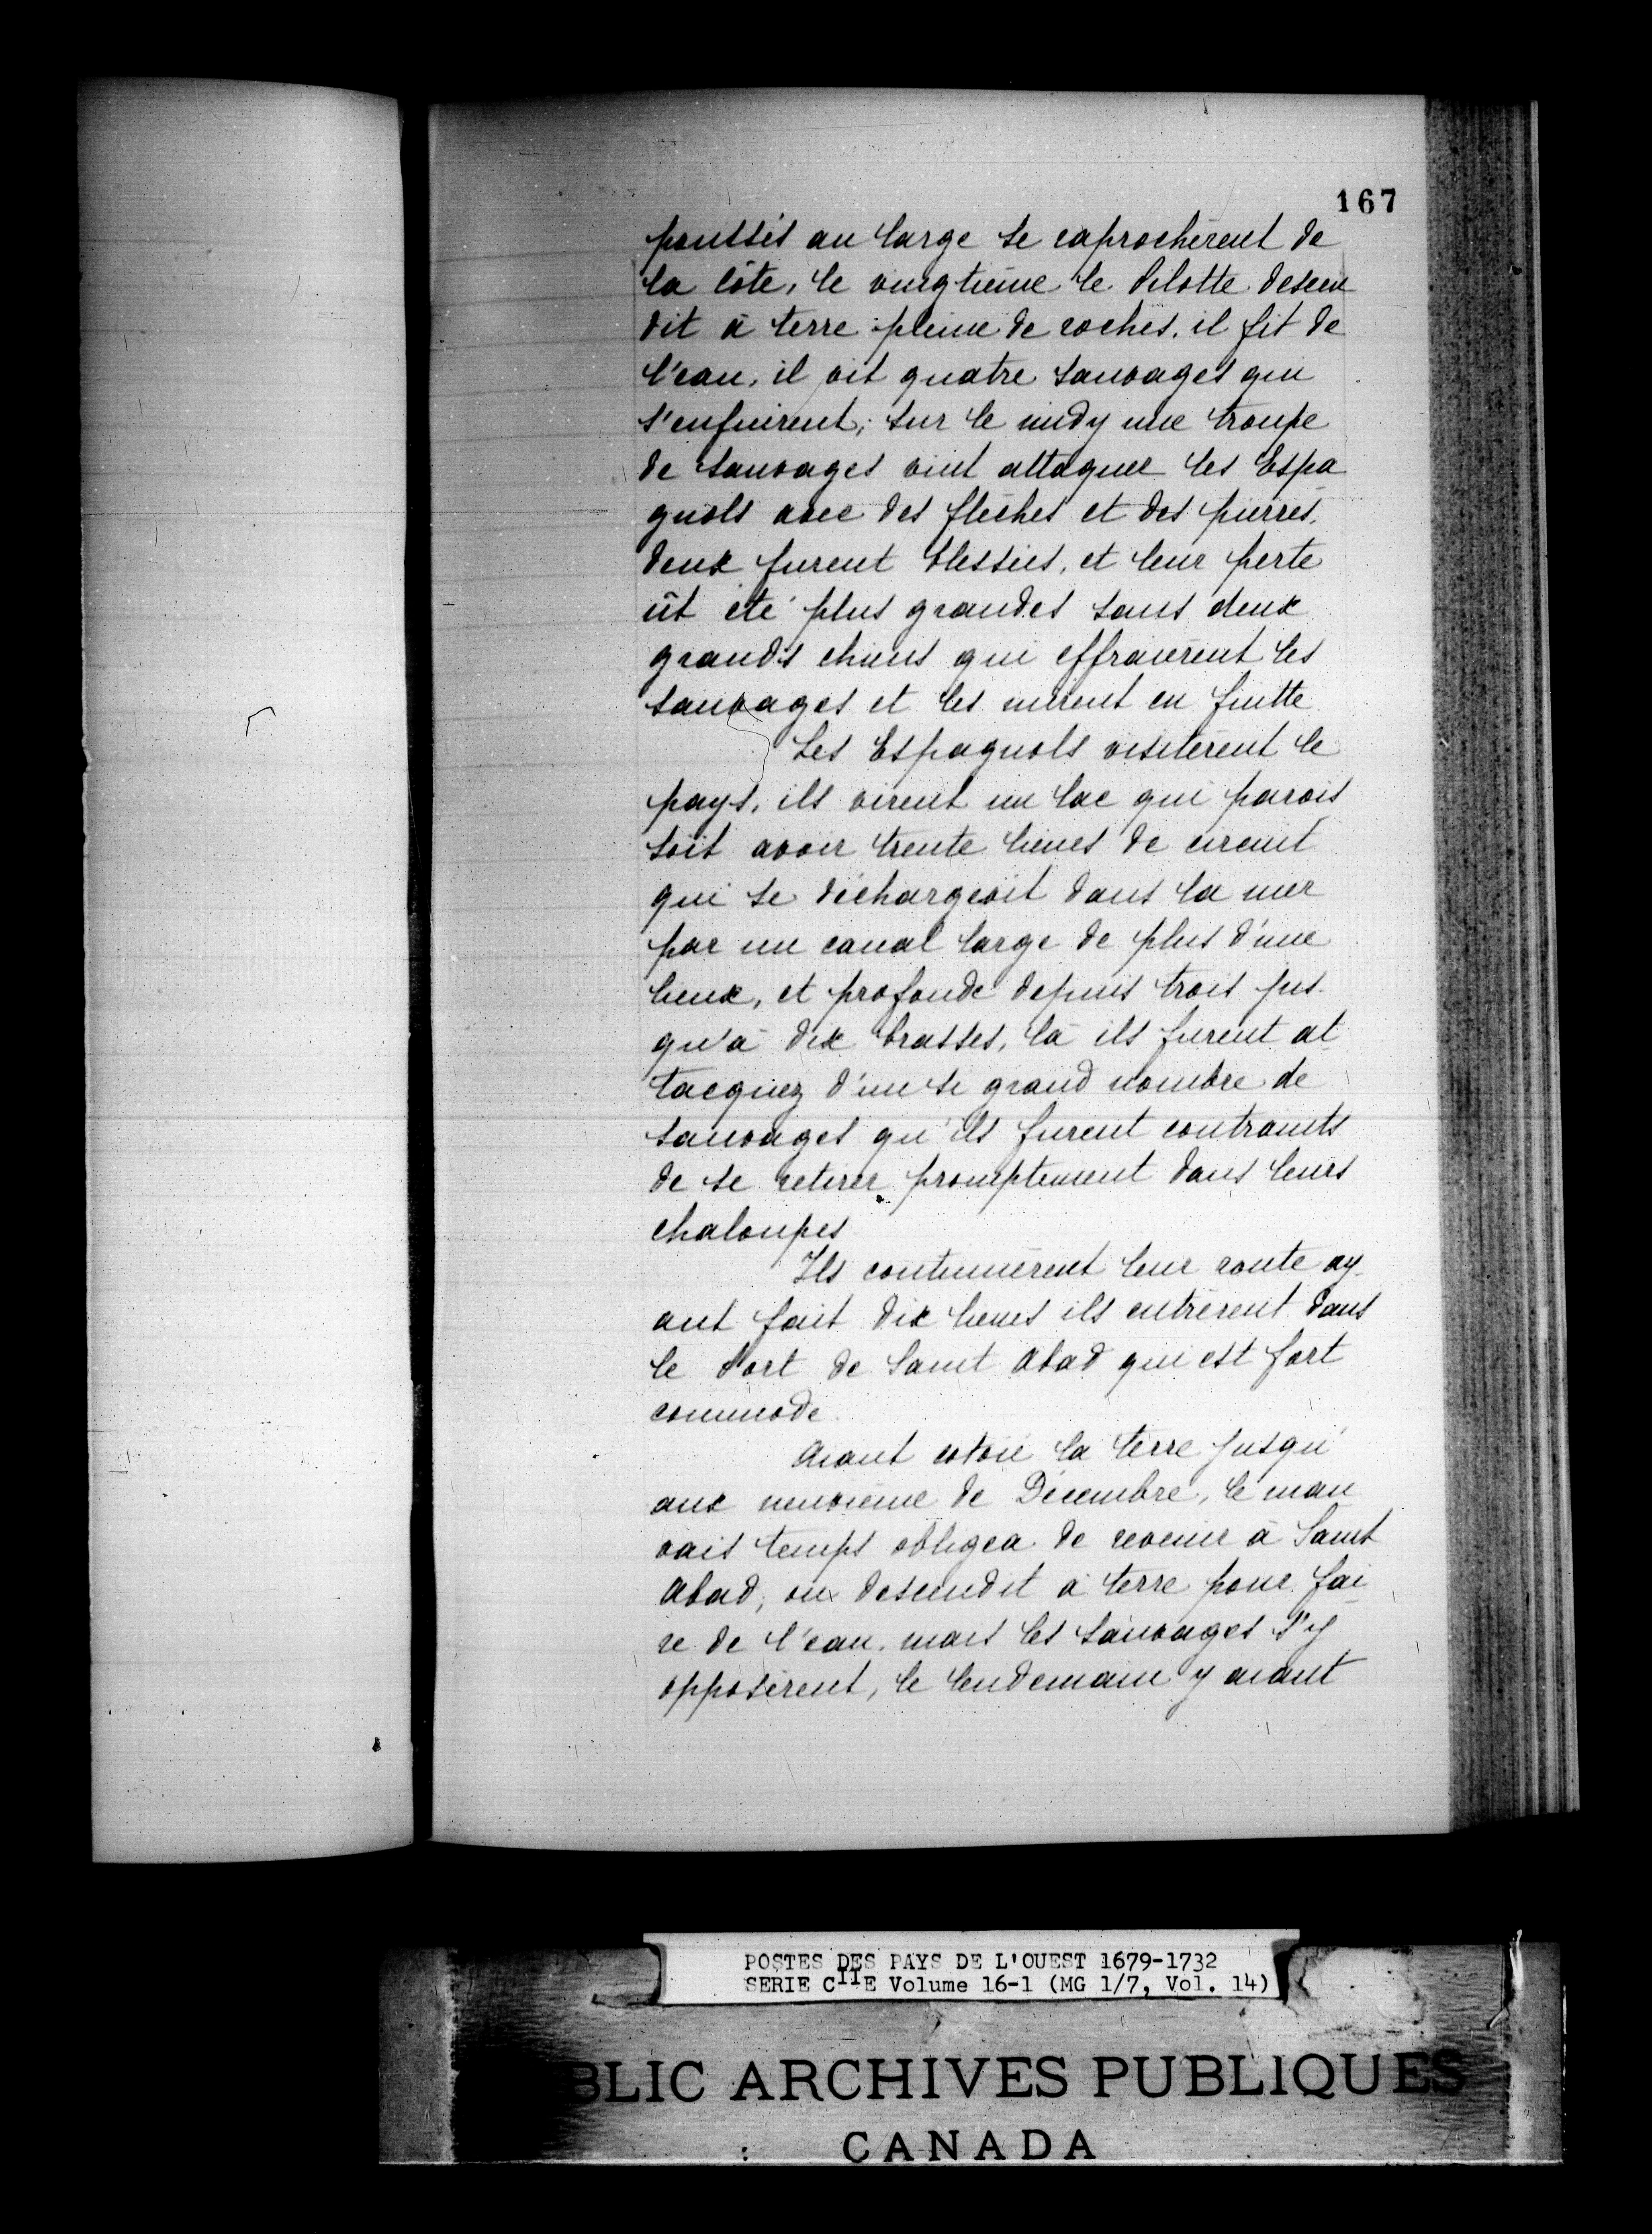 167
poussés au large se raprochèrent de
la côte, le vingtième le Pilotte descen
dit à terre pleine de roches. il fit de
l'eau, il vit quatre sauvages qui
s'enfuirent; sur le midy une troupe
de sauvages vint attaquer les Espa
gnols avec des flèches et des pierres,
deux furent blessés, et leur perte
ût été plus grandes sans deux
grands chiens qui effraièrent les
sauvages et les mirent en fuitte
Les Espagnols visitèrent le
pays, ils virent un lac qui parois
soit avoir trente lieues de circuit
qui se déchargeoit dans la mer
par un canal large de plus d'une
lieux, et profonde depuis trois jus-
qu'à dix brasses, là ils furent at
tacquez d'un si grand nombre de
sauvages qu'ils furent contraints
de se retirer promptement dans leurs
chaloupes
Ils continuèrent leur route ay-
ant fait dix lieues ils entrèrent dans
le Port de Saint Abad qui est fort
commode.
Aiant cotoié la terre jusqu'
aux neuvième de Décembre, le mau
vais temps obligea de revenir à Saint
Abad, on descendit à terre pour fai
re de l'eau, mais les sauvages s'y
opposèrent, le lendemain y aiant
POSTES DES PAYS DE L'OUEST 1679-1732
SERIE CIIE Volume 16-1 (MG 1/7, Vol. 14)
BLIC ARCHIVES PUBLIQUES
CANADA